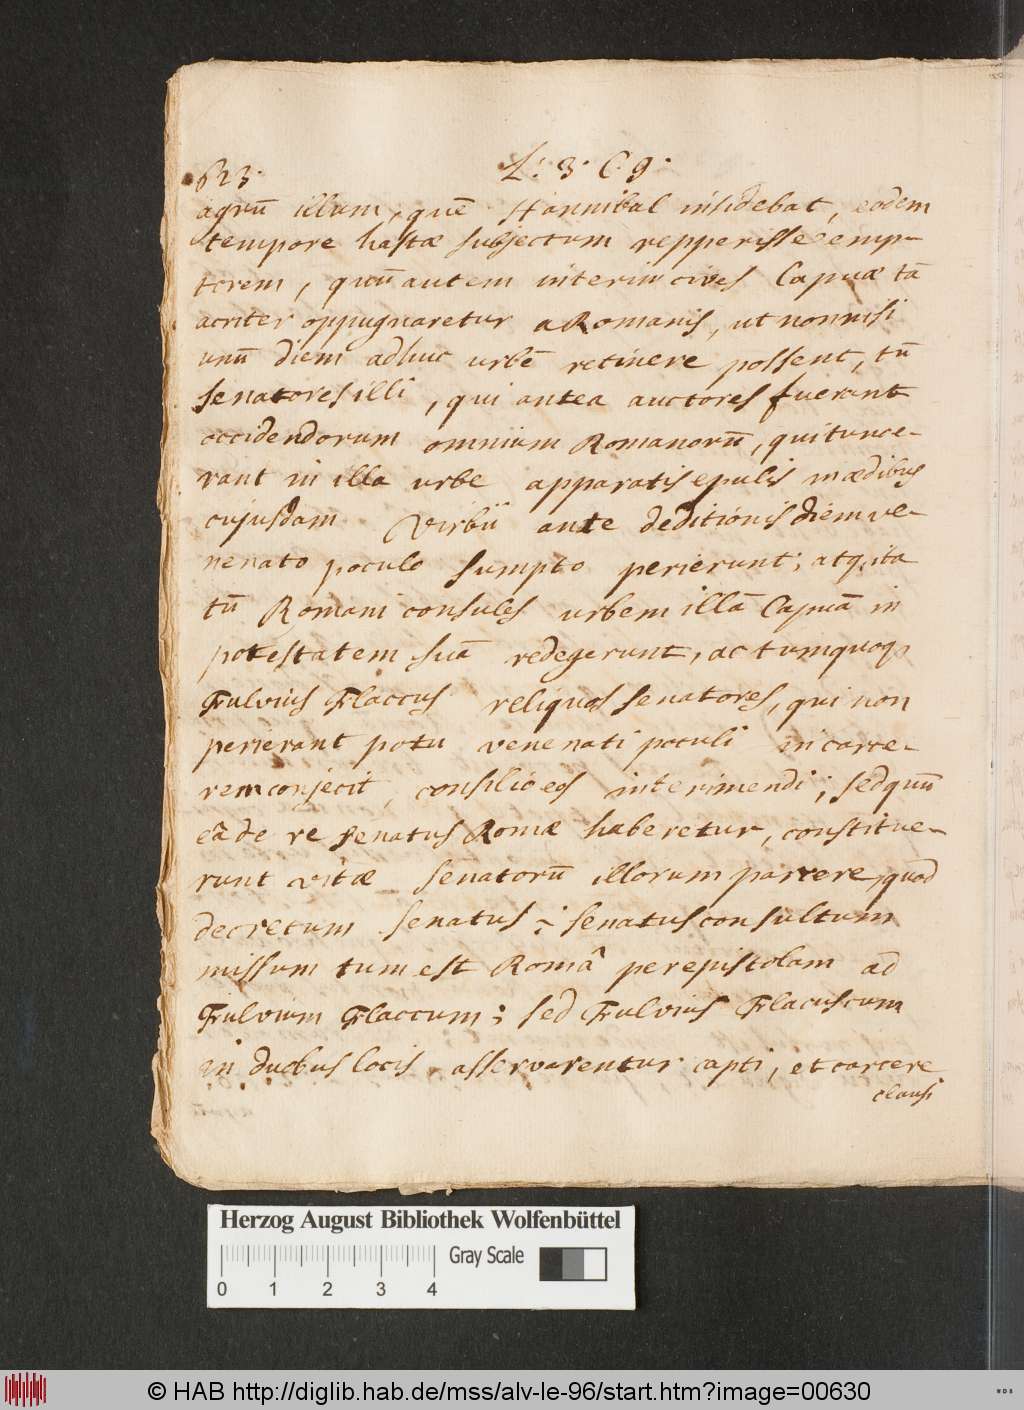 623. L: 3. C. 9.
agrū illum, quē Hannibal insidebat, eodem
tempore hastæ subjectum repperisse emp-
torem, quū autem interim cives Capuæ tā
acriter oppugnaretur a Romanis, ut nonnisi
unū diem adhuc urbē retinere possent, tū
senatores illi, qui antea auctores fuerant
occidendorum omnium Romanorū, qui tunc e-
rant in illa urbe apparatis epulis in ædibus
cujusdam Virbii ante deditionis diem ve-
nenato poculo sumpto perierunt; atq, ita
tū Romani consules urbem illā Capuā in
potestatem suā redegerunt, ac tum quoq,
Fulvius Flaccus reliquos senatores, qui non
perierant potu venenati poculi in carce-
rem conjecit, consilio eos interimendi; sed quū
eā de re senatus Romæ haberetur, constitue-
runt vitæ senatorū illorum parcere, quod
decretum senatus; senatus consultum
missum tum est Româ per epistolam ad
Fulvium Flaccum; sed Fulvius Flacus cum
in duobus locis asservarentur capti, et carcere
clausi
Herzog August Bibliothek Wolfenbüttel
Gray Scale
0 1 2 3 4
© HAB http://diglib.hab.de/mss/alv-le-96/start.htm?image=00630